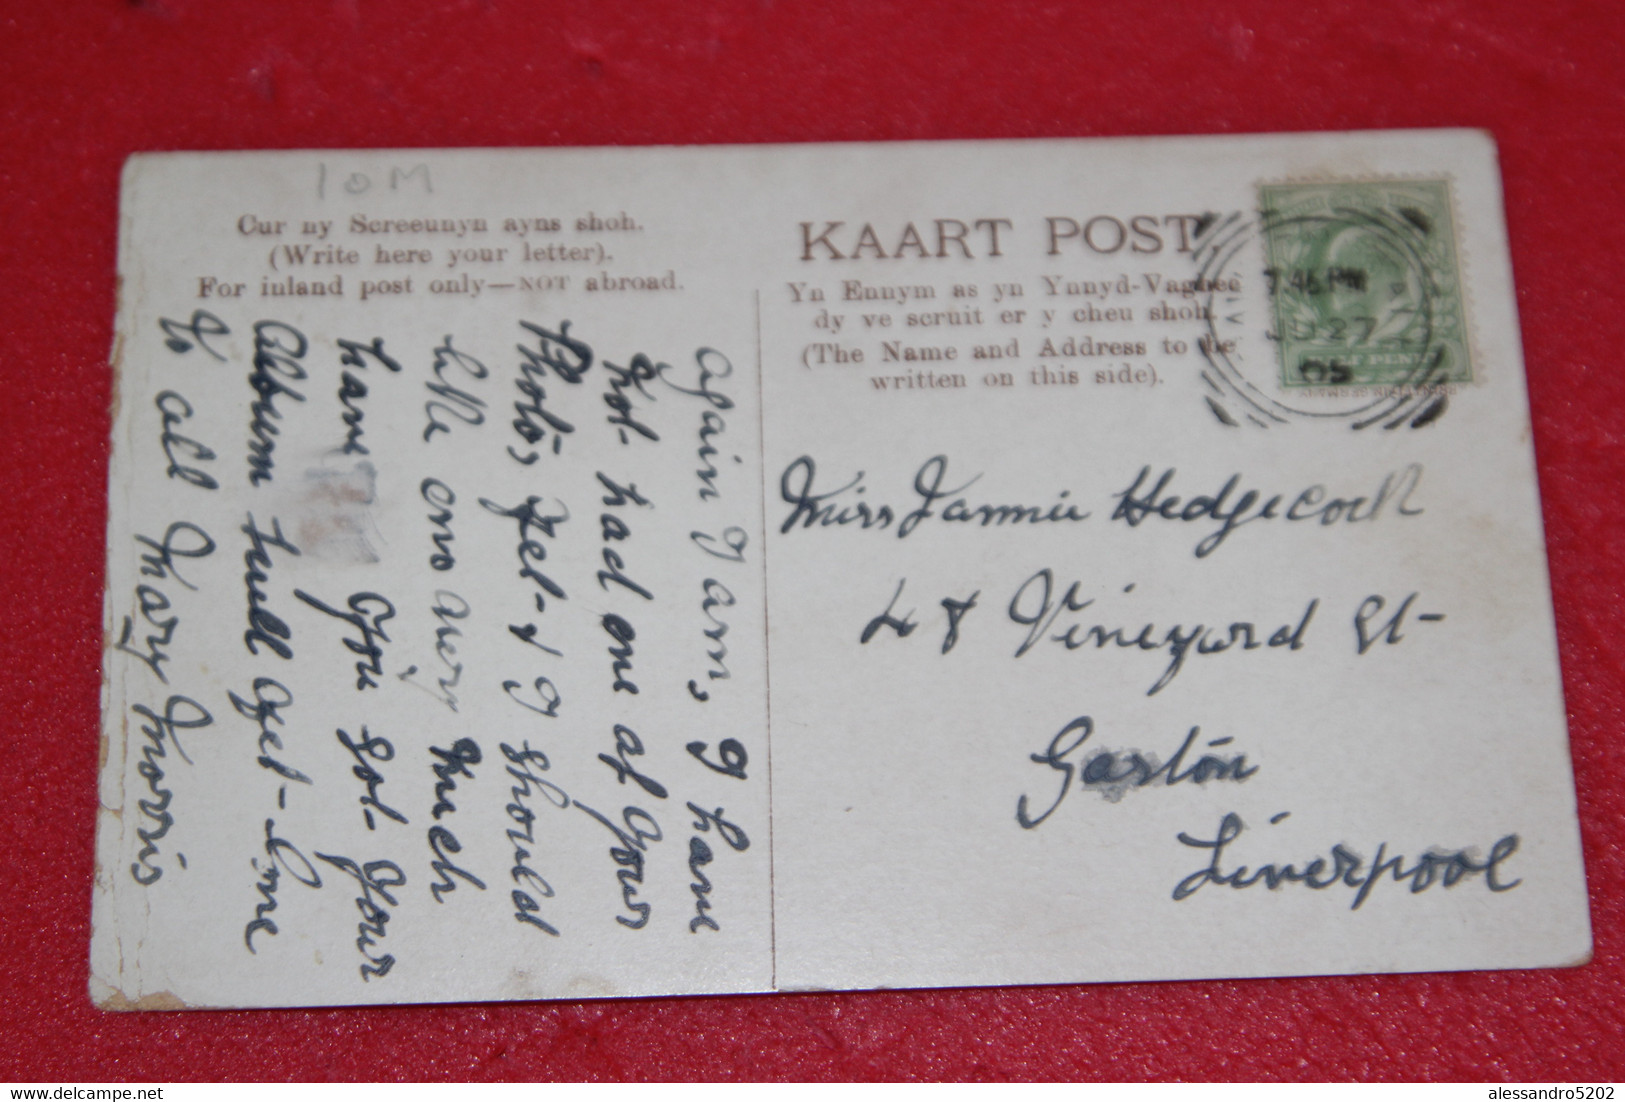 IOM
Cur ny Screeunyn ayns shoh.
(Write here your letter).
For inland post only—NOT abroad.
KAART POST.
Yn Ennym as yn Ynnyd-Vaghee
dy ve scruit er y cheu shoh.
(The Name and Address to be
written on this side).
7.45 PM
27
05
again I am, I have
not had one of your
Photo, yet & I should
like one awry much
have you got your
Album full yet - love
to all Mary Morris
Miss Hedgecock
48 Vineyard St
Garston
Liverpool
alessandro5202